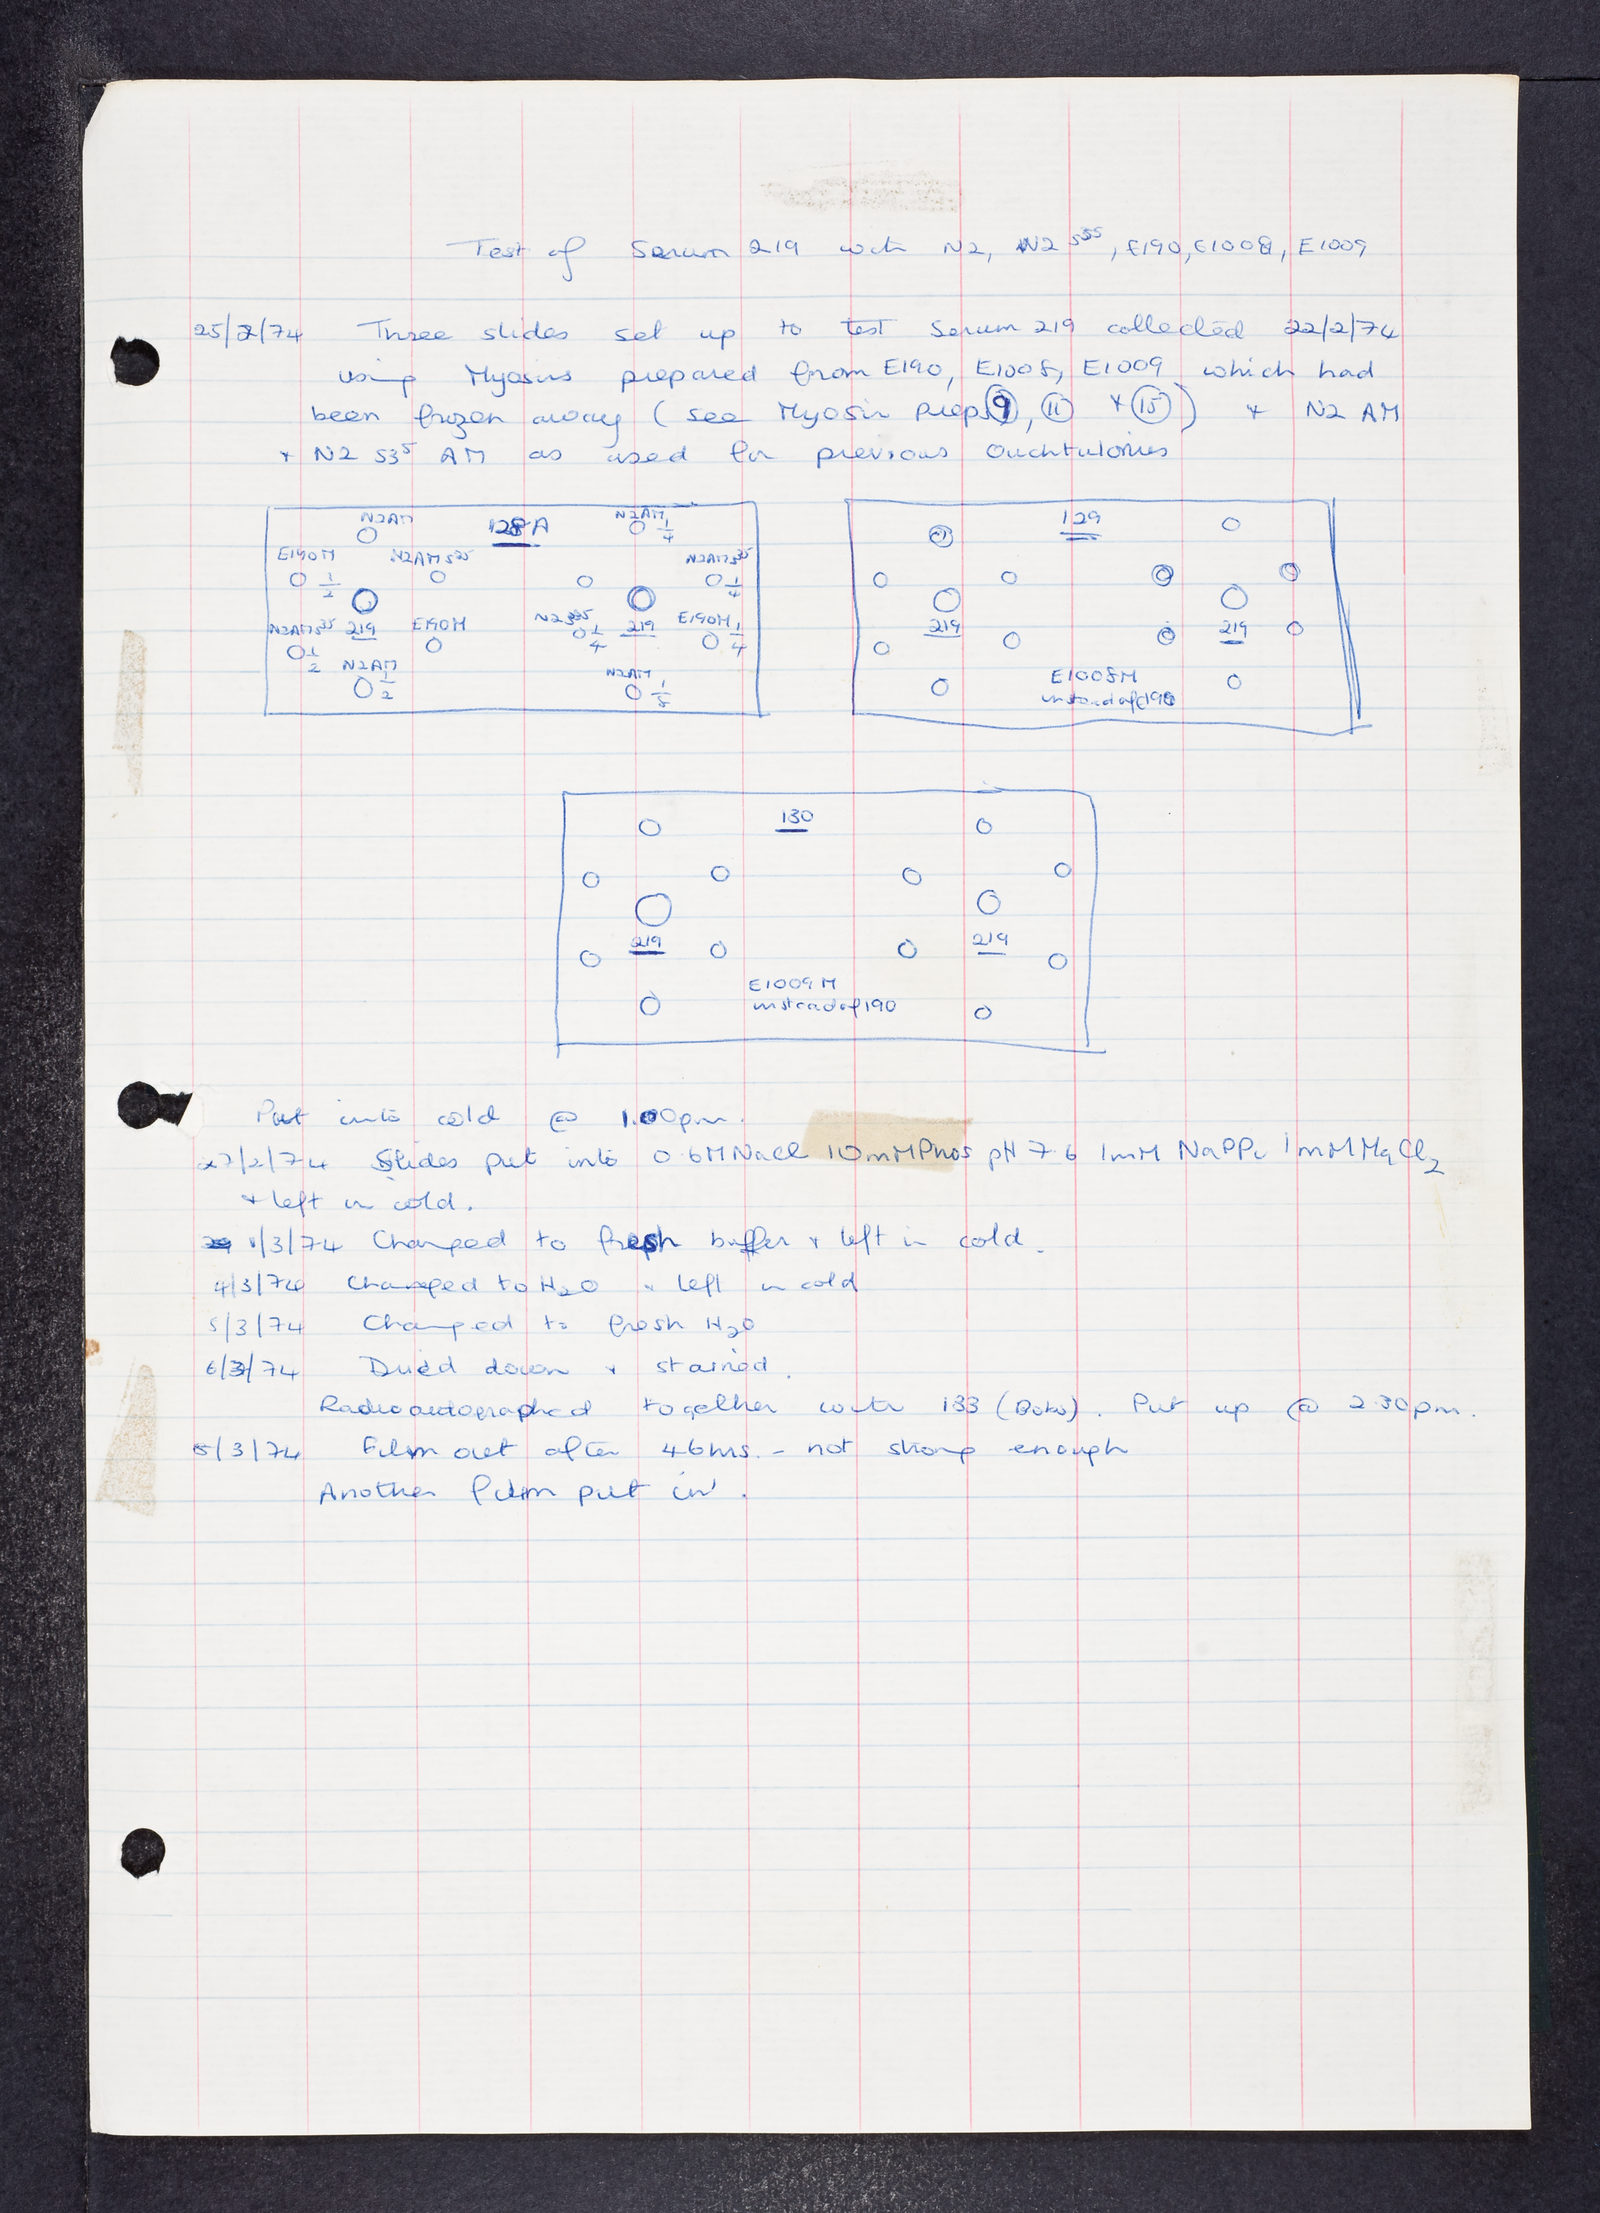 Test of Serum 219 with N2, N2 S35, E190, E1008, E1009
25/2/74 Three slides set up to test Serum 219 collected 22/2/74
using Myosins prepared from E190, E1008, E1009 which had
been frozen away (see Myosin Preps 9, 11 + 15) + N2 AM
+ N2 S35 AM as used for previous Ouchtulonies
128A
N2AM
N2AM 1/4
E190M 1/2
N2AM S35
N2AM S35 1/4
N2AM S35 1/2
219
E190M
N2 S35 1/4
219
E190M 1/4
N2AM 1/2
N2AM 1/8
129
219
219
E1008M
instead of E190
130
219
219
E1009M
instead of 190
Put into cold @ 1.00pm.
27/2/74 Slides put into 0.6M NaCl 10mM Phos pH 7.6 1mM NaPPi 1mM MgCl2
+ left in cold.
1/3/74 Changed to fresh buffer + left in cold.
4/3/74 Changed to H2O + left in cold
5/3/74 Changed to fresh H2O
6/3/74 Dried down + stained.
Radioautographed together with 133 (Bots). Put up @ 2.30pm.
8/3/74 Film out after 46hrs. - not strong enough
Another film put in.